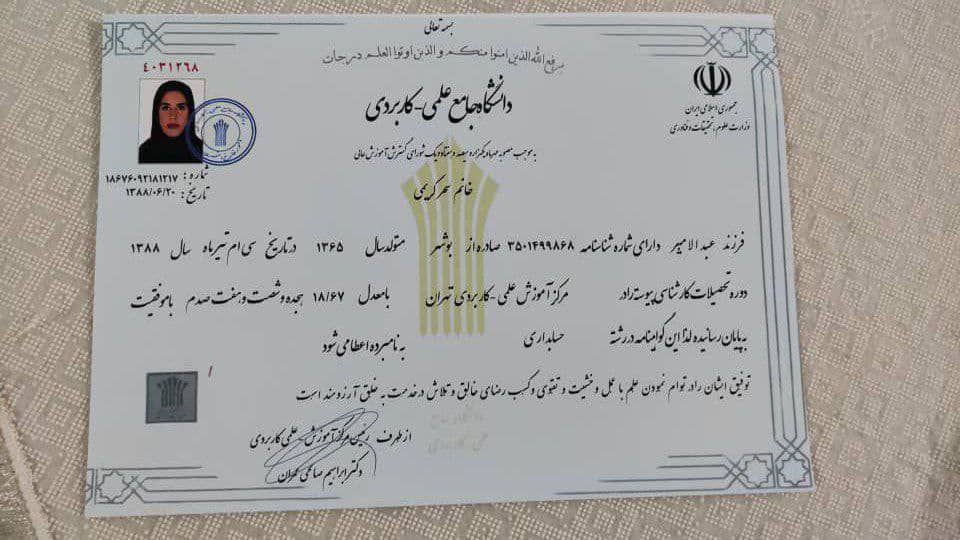 بسمه تعالی
یرفع الله الذین امنوا منکم و الذین اوتوا العلم درجات
۴۰۳۱۲۶۸
جمهوری اسلامی ایران
وزارت علوم، تحقیقات و فناوری
دانشگاه جامع علمی - کاربردی
به موجب مصوبه چهارو یکهزاره سیصد و هشتاد و یک شورای گسترش آموزش عالی
شماره: ۱۸۶۷۶۰۹۲۱۸۱۲۱۷
تاریخ: ۱۳۸۸/۰۶/۲۰
خانم سحر کریمی
فرزند عبدالامیر دارای شماره شناسنامه ۳۵۰۱۴۹۹۸۶۸ صادره از بوشهر متولد سال ۱۳۶۵ در تاریخ سی ام تیرماه سال ۱۳۸۸
دوره تحصیلات کارشناسی پیوسته را در مرکز آموزش علمی - کاربردی تهران با معدل ۱۸/۶۷ هجده و شصت و هفت صدم با موفقیت
به پایان رسانیده لذا این گواهینامه در رشته حسابداری به نامبرده اعطا می شود
توفیق ایشان را در توام نمودن علم با عمل و خشیت و تقوی و کسب رضای خالق و تلاش در خدمت به خلق آرزومند است
از طرف رئیس مرکز آموزش علمی کاربردی
دکتر ابراهیم صالحی عمران